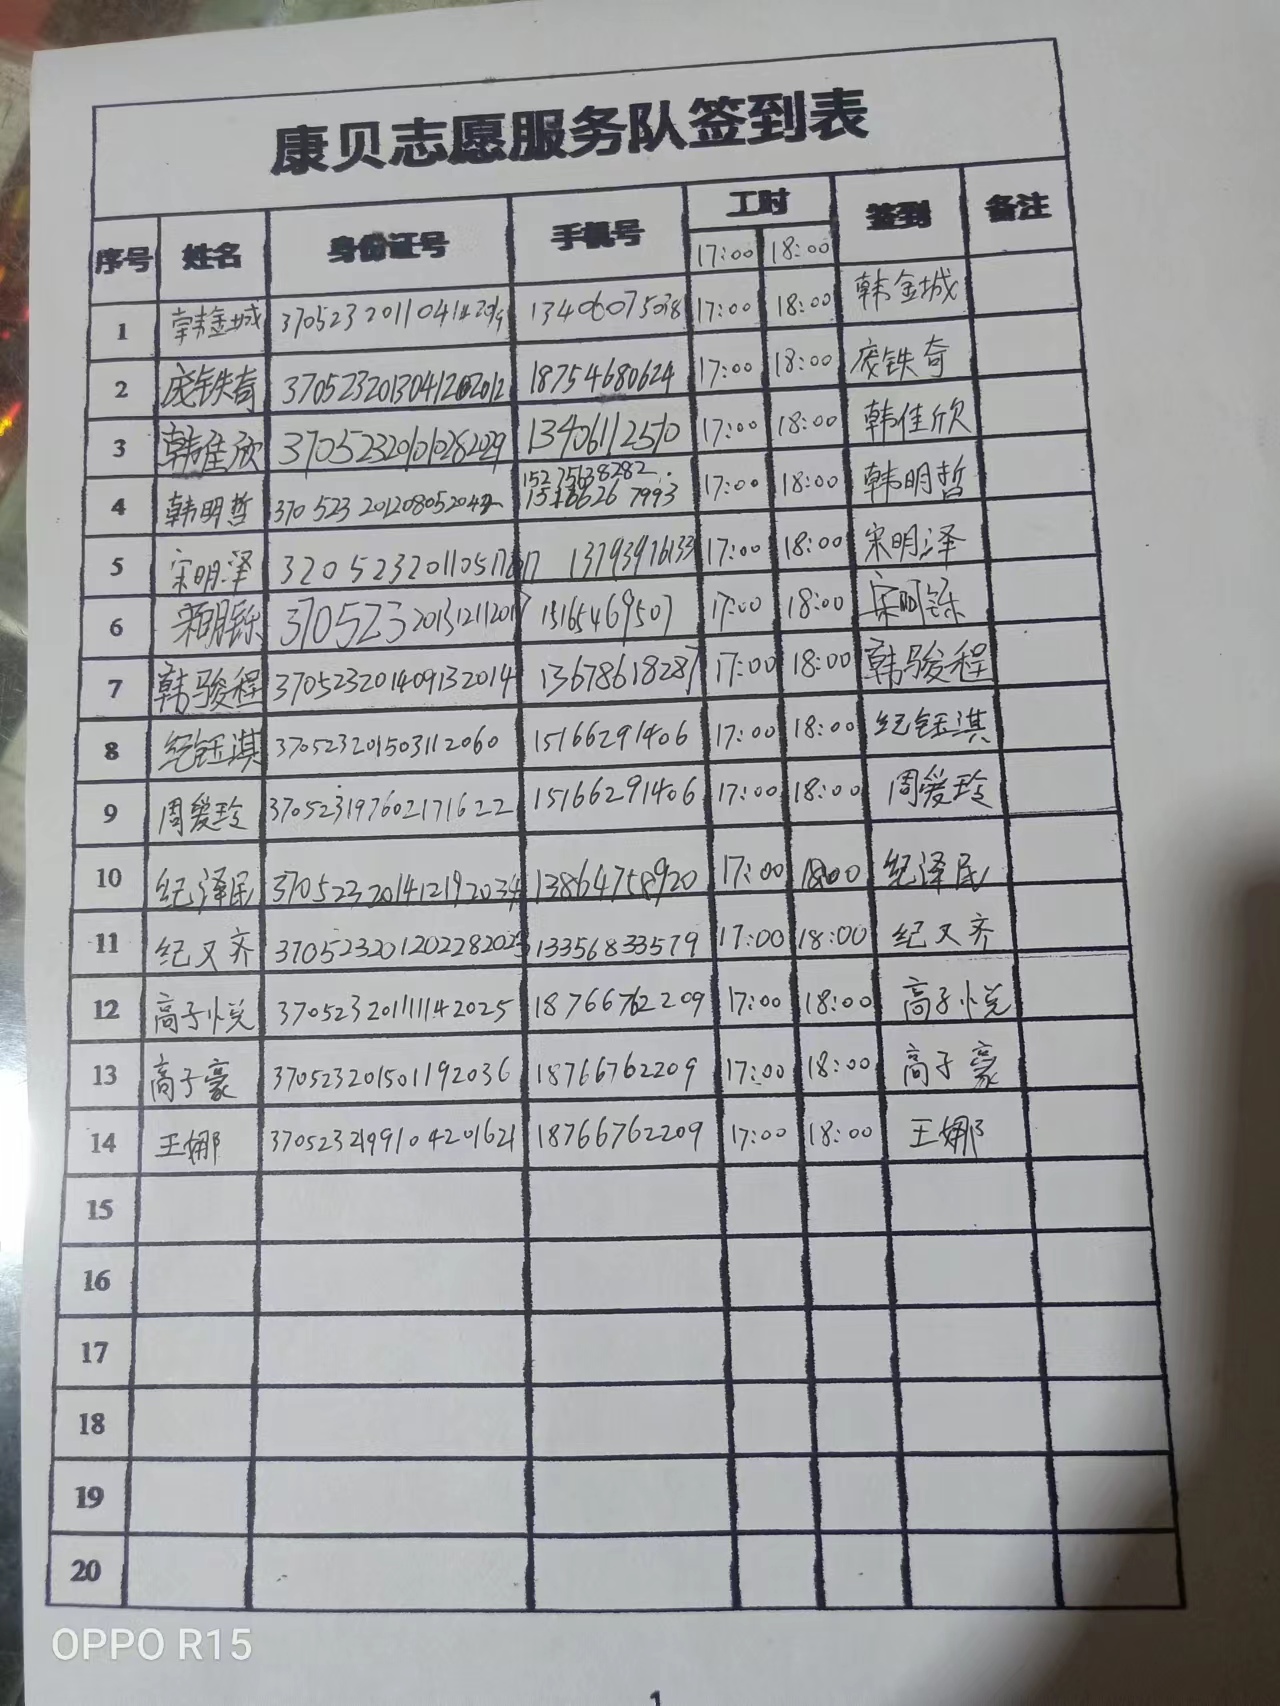 康贝志愿服务队签到表
序号 姓名 身份证号 手机号 工时 签到 备注
17:00 18:00
1 韩金城 13406075038 17:00 18:00 韩金城
2 庞铁奇 18754680624 17:00 18:00 庞铁奇
3 韩佳欣 13406112510 17:00 18:00 韩佳欣
15275638282
4 韩明哲 17:00 18:00 韩明哲
5 宋明泽 13793976133 17:00 18:00 宋明泽
6 宋明铄 370523201312112017 15165469507 17:00 18:00 宋明铄
7 韩骏程 370523201409132014 13678618287 17:00 18:00 韩骏程
8 纪钰淇 370523201503112060 15166291406 17:00 18:00 纪钰淇
9 周爱玲 370523197602171622 15166291406 17:00 18:00 周爱玲
10 纪泽民 370523201412192034 13864758920 17:00 18:00 纪泽民
11 纪又齐 370523201202282023 13356833579 17:00 18:00 纪又齐
12 高子悦 370523201111142025 18766762209 17:00 18:00 高子悦
13 高子豪 370523201501192036 18766762209 17:00 18:00 高子豪
14 王娜 18766762209 17:00 18:00 王娜
15
16
17
18
19
20
OPPO R15
1